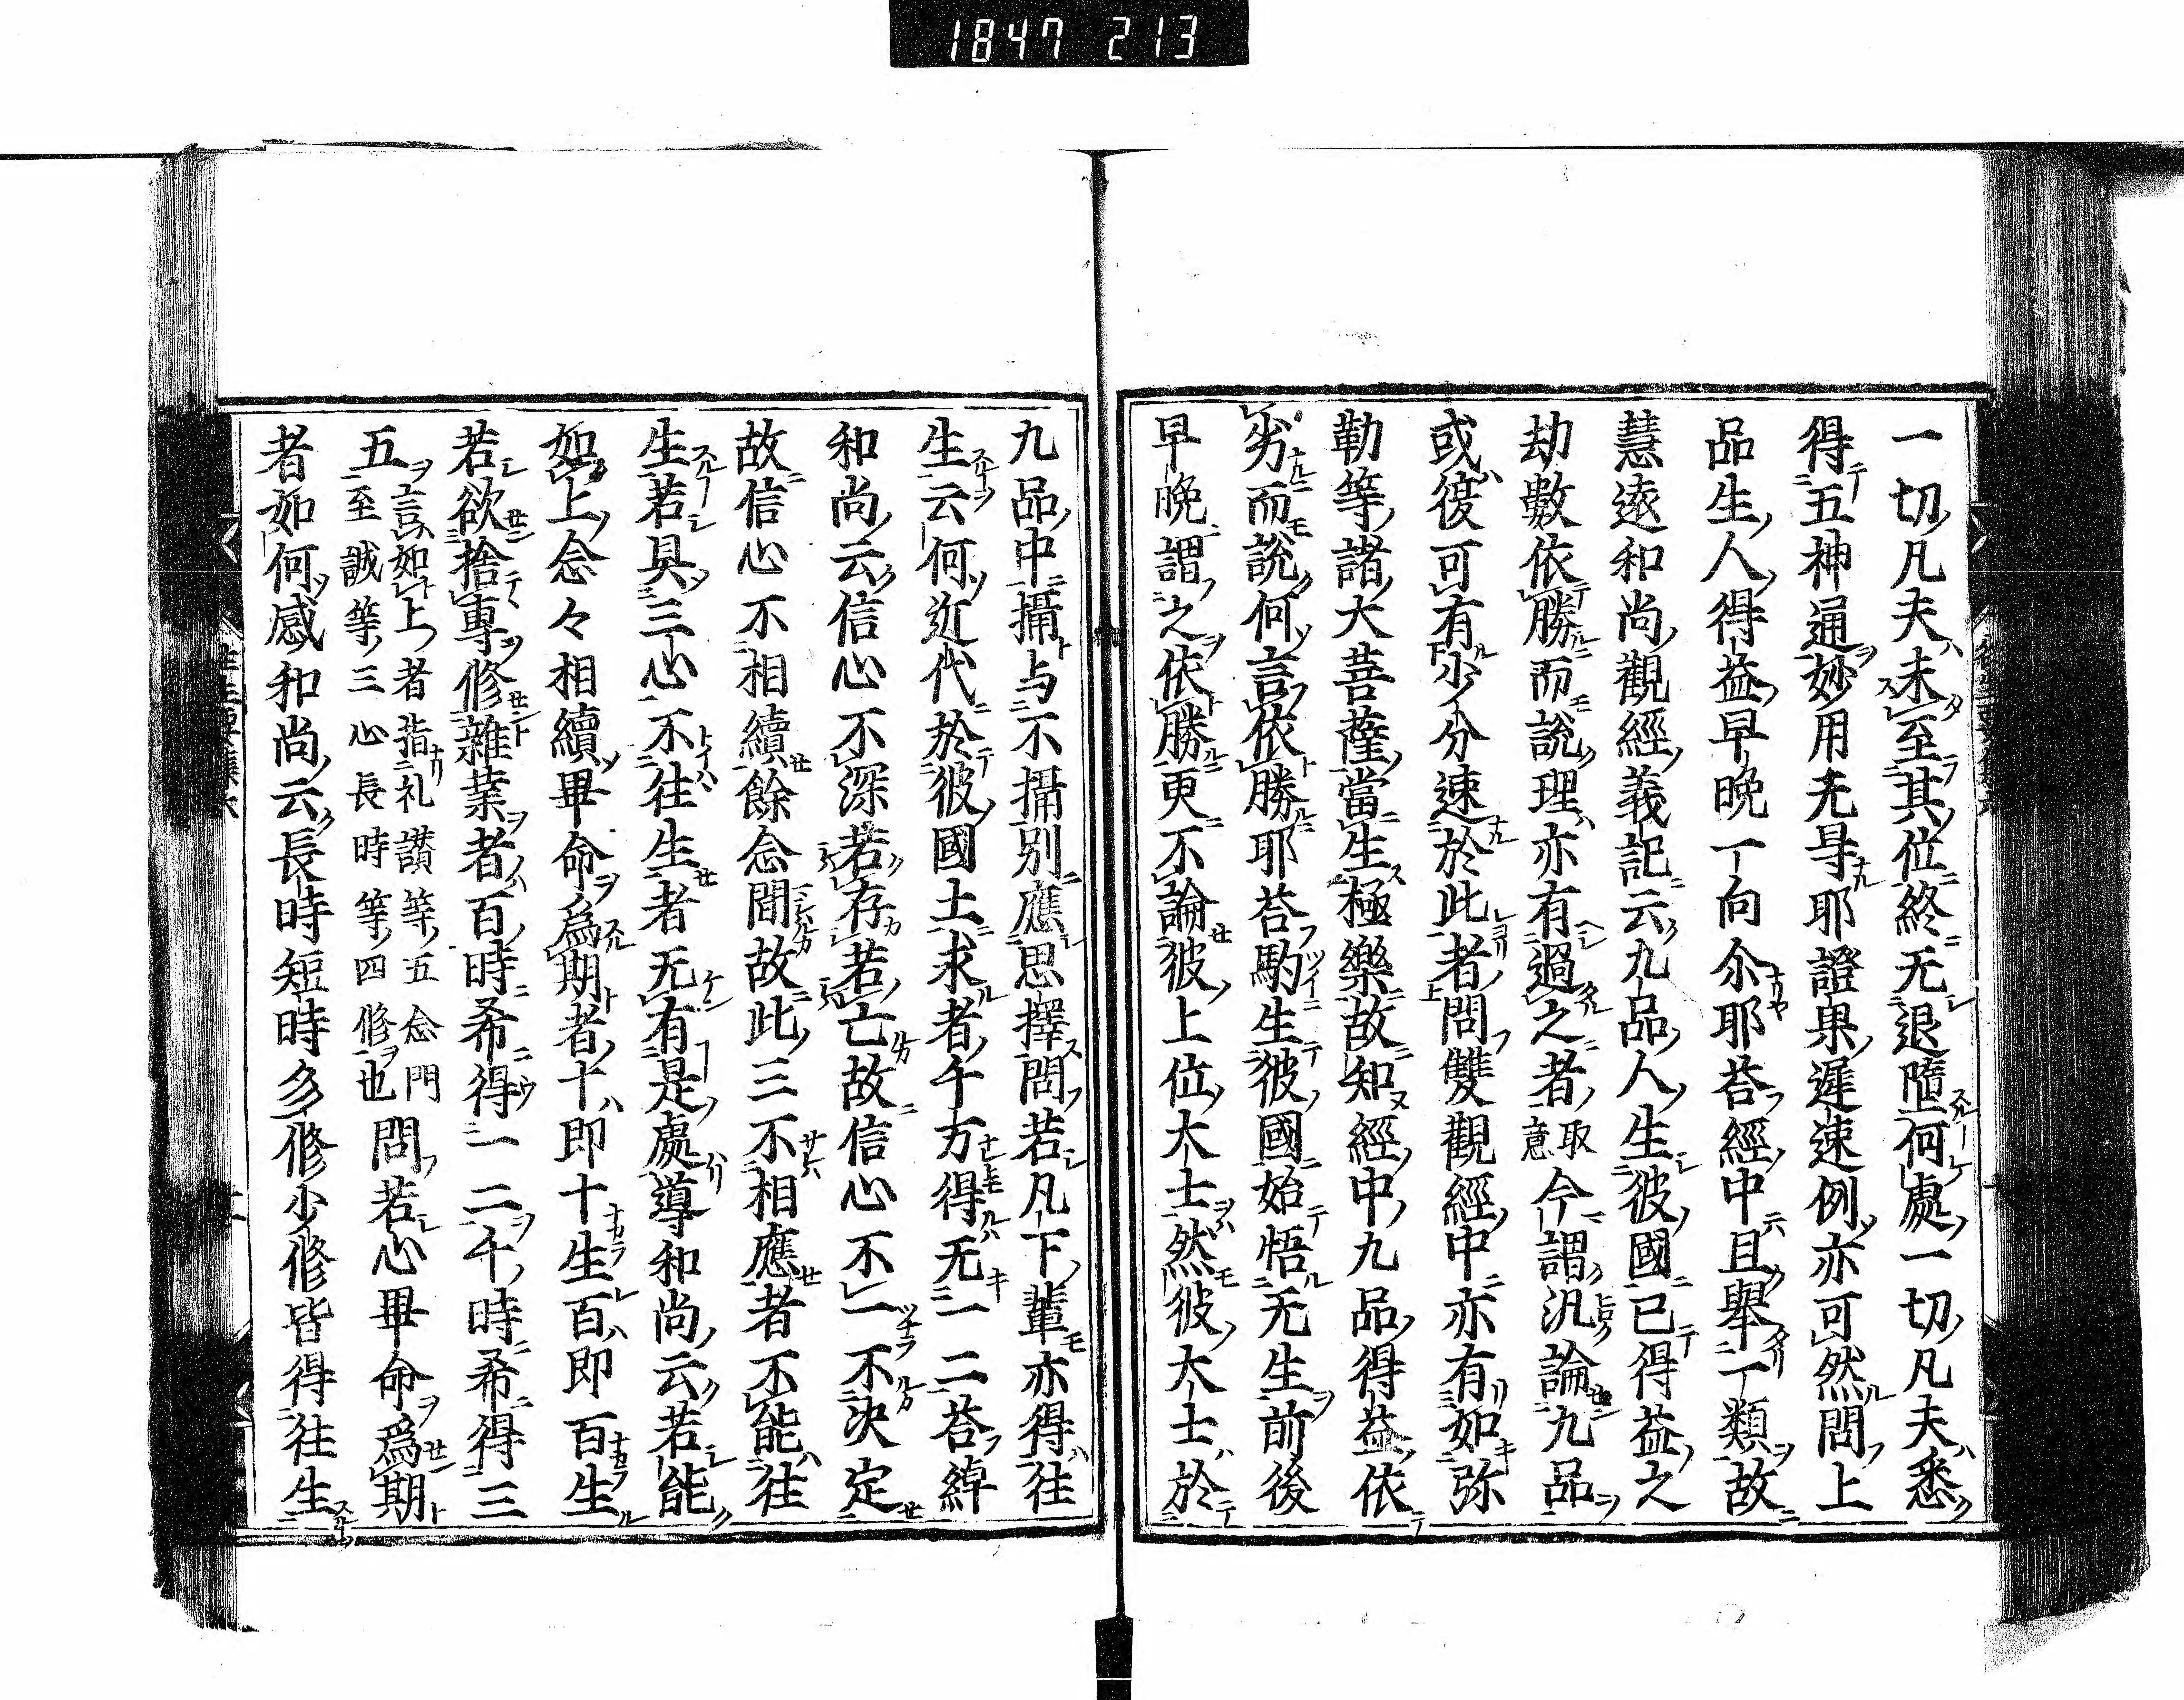 1847 213
一切凡夫未至其位終无退墮何處一切凡夫悉
得五神通妙用无㝵耶證果遲速例亦可然問上
品生人得益早晚一向尒耶荅經中且舉一類故
慧遠和尚觀經義記云九品人生彼國已得益之
劫數依勝而說理亦有過之者取意今謂汎論九品
或復可有少分速於此者問雙觀經中亦有如弥
勒等諸大菩薩當生極樂故知經中九品得益依
劣而說何言依勝耶荅駒生彼國始悟无生前後
早晚謂之依勝更不論彼上位大士然彼大士於
九品中攝与不攝別應思擇問若凡下輩亦得往
生云何近代於彼國土求者千万得无一二荅綽
和尚云信心不深若存若亡故信心不一不決定
故信心不相續餘念間故此三不相應者不能往
生若具三心不往生者无有是處導和尚云若能
如上念々相續畢命為期者十即十生百即百生
若欲捨專修雜業者百時希得一二千時希得三
五言如上者指礼讃等五念門至誠等三心長時等四修也問若心畢命為期
者如何感和尚云長時短時多修少修皆得往生